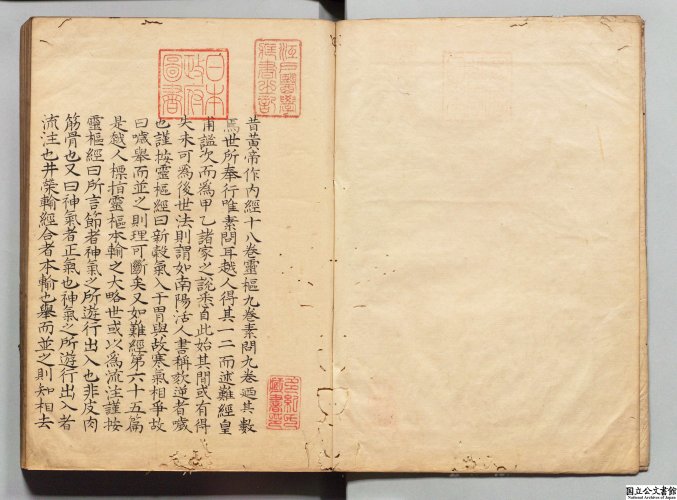 昔黃帝作內經十八卷靈樞九卷素問九卷迺其數
焉世所奉行唯素問耳越人得其一二而述難經皇
甫謐次而為甲乙諸家之說悉自此始其間或有得
失未可為後世法則謂如南陽活人書稱欬逆者噦
也謹按靈樞經曰新穀氣入于胃與故寒氣相爭故
曰噦舉而並之則理可斷矣又如難經第六十五篇
是越人標指靈樞本輸之大略世或以為流注謹按
靈樞經曰所言節者神氣之所遊行出入也非皮肉
筋骨也又曰神氣者正氣也神氣之所遊行出入者
流注也井滎輸經合者本輸也舉而並之則知相去
日本
政府
圖書
國立公文書館
National Archives of Japan